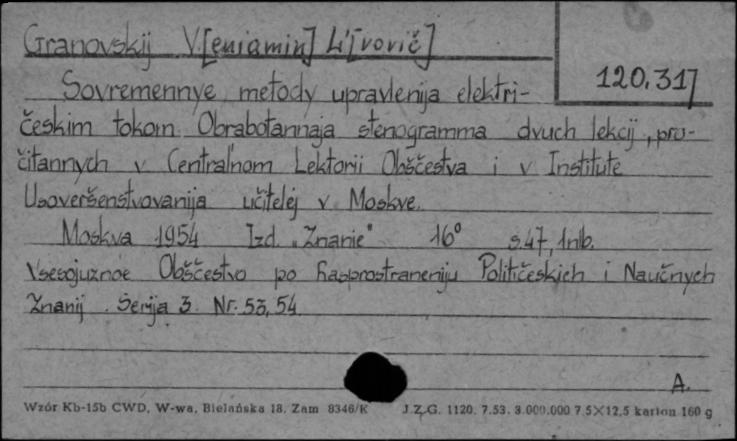 Granovskij V.[eniamin] L'[vovič]
120.317
Sovremennye metody upravlenija elektri-
českim tokom. Obrabotannaja stenogramma dvuch lekcij, pro-
čitannych v Central'nom Lektorii Obščestva i v Institute
Usoveršenstvovanija učitelej v Moskve.
Moskva 1954 Izd. "Znanie" 16° s.47, 1nlb.
Vsesojuznoe Obščestvo po Rasprostraneniju Političeskich i Naučnych
Znanij. Serija 3. Nr. 53, 54
A.
Wzór Kb-15b CWD, W-wa, Bielańska 18. Zam 8346/K J.Z.G. 1120. 7.53. 3.000.000 7,5×12,5 karton 160 g